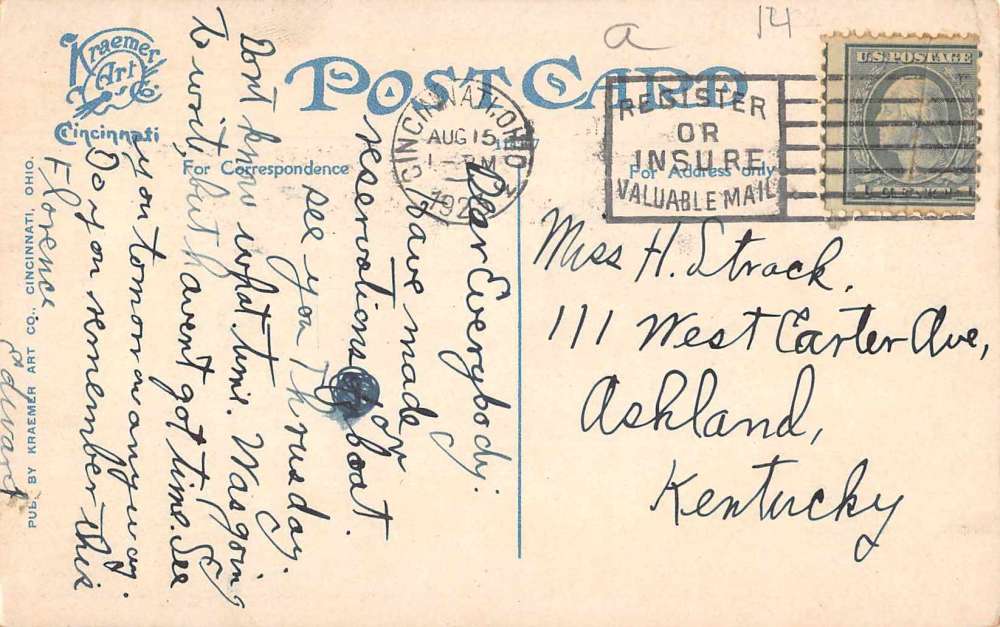 a
121
Kraemer
Art
Co
Cincinnati
POST CARD
For Correspondence
For Address only
CINCINNATI, OHIO
AUG 15
1 - PM
192
REGISTER
OR
INSURE
VALUABLE MAIL
U.S. POSTAGE
Miss H. Strack.
111 West Carter Ave,
Ashland,
Kentucky
Dear Everybody.
have made
reservations for boat.
see you Thrusday.
Dont know what time. Was going
to write, but havent got time. See
you tomorrow anyway.
Do you remember this
Florence
Edward
PUB. BY KRAEMER ART CO., CINCINNATI, OHIO.